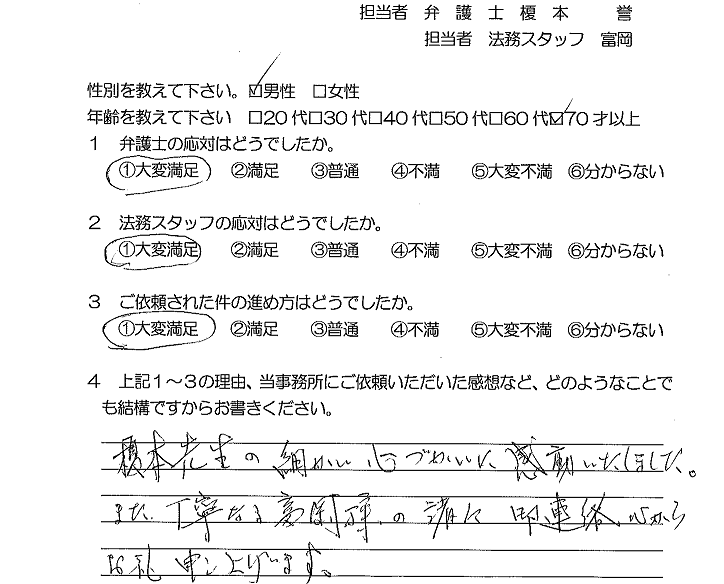 担当者 弁護士榎本 誉
担当者 法務スタッフ 富岡
性別を教えて下さい。☑男性 □女性
年齢を教えて下さい □20代□30代□40代□50代□60代☑70才以上
1 弁護士の応対はどうでしたか。
①大変満足 ②満足 ③普通 ④不満 ⑤大変不満 ⑥分からない
2 法務スタッフの応対はどうでしたか。
①大変満足 ②満足 ③普通 ④不満 ⑤大変不満 ⑥分からない
3 ご依頼された件の進め方はどうでしたか。
①大変満足 ②満足 ③普通 ④不満 ⑤大変不満 ⑥分からない
4 上記1～3の理由、当事務所にご依頼いただいた感想など、どのようなことで
も結構ですからお書きください。
榎本先生の細かい心づかいに感動いたしました。
また、丁寧なの諸々連絡、心から
お礼申し上げます。